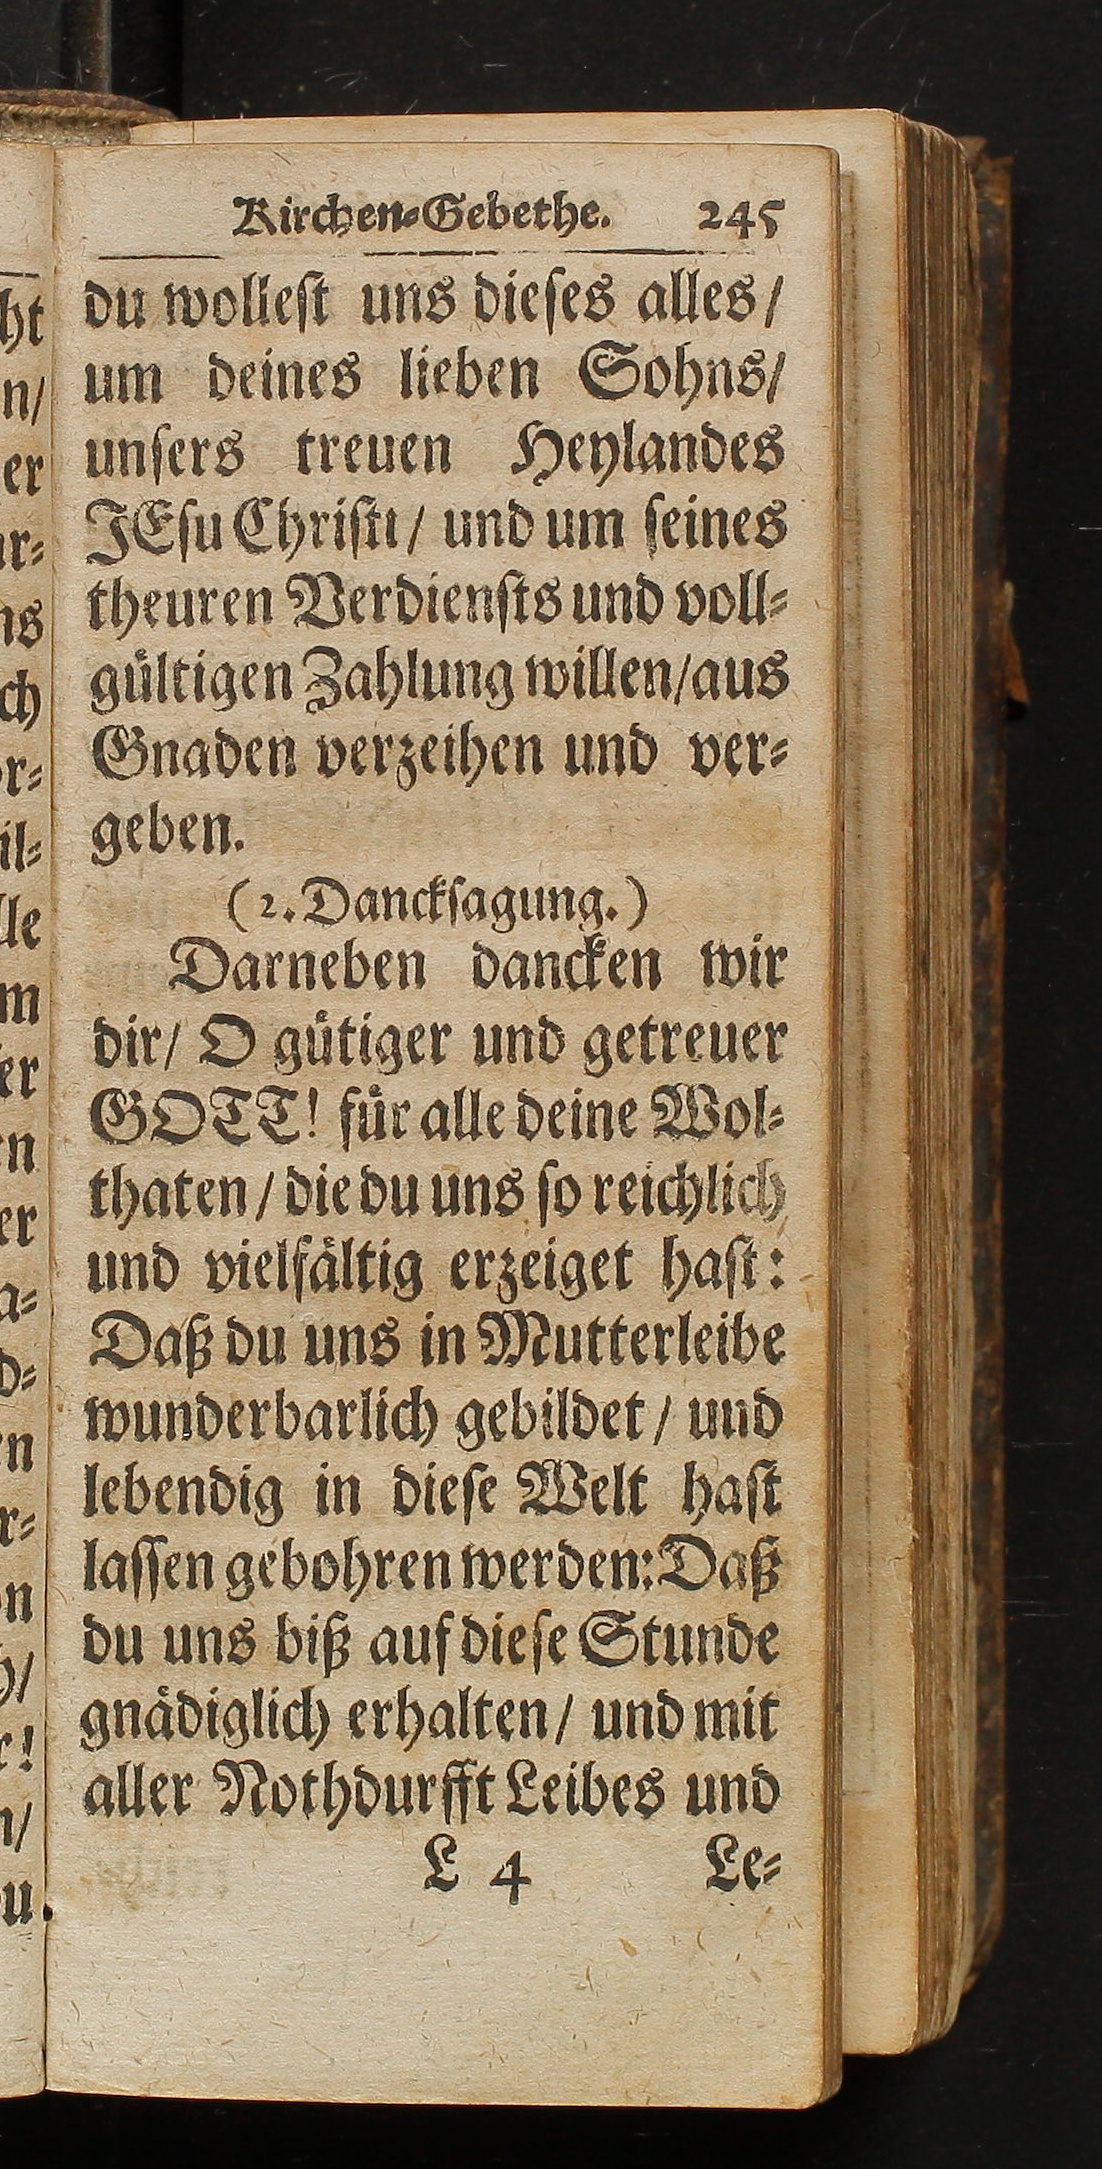 Kirchen-Gebethe. 245
du wolleſt uns dieſes alles/
um deines lieben Sohns/
unſers treuen Heylandes
JEſu Chriſti/ und um ſeines
theuren Verdienſts und voll-
gültigen Zahlung willen/aus
Gnaden verzeihen und ver-
geben.
(2. Danckſagung.)
Darneben dancken wir
dir/ O gütiger und getreuer
GOTT! für alle deine Wol-
thaten/ die du uns ſo reichlich
und vielfältig erzeiget haſt:
Daß du uns in Mutterleibe
wunderbarlich gebildet/ und
lebendig in dieſe Welt haſt
laſſen gebohren werden: Daß
du uns biß auf dieſe Stunde
gnädiglich erhalten/ und mit
aller Nothdurfft Leibes und
L 4 Le-